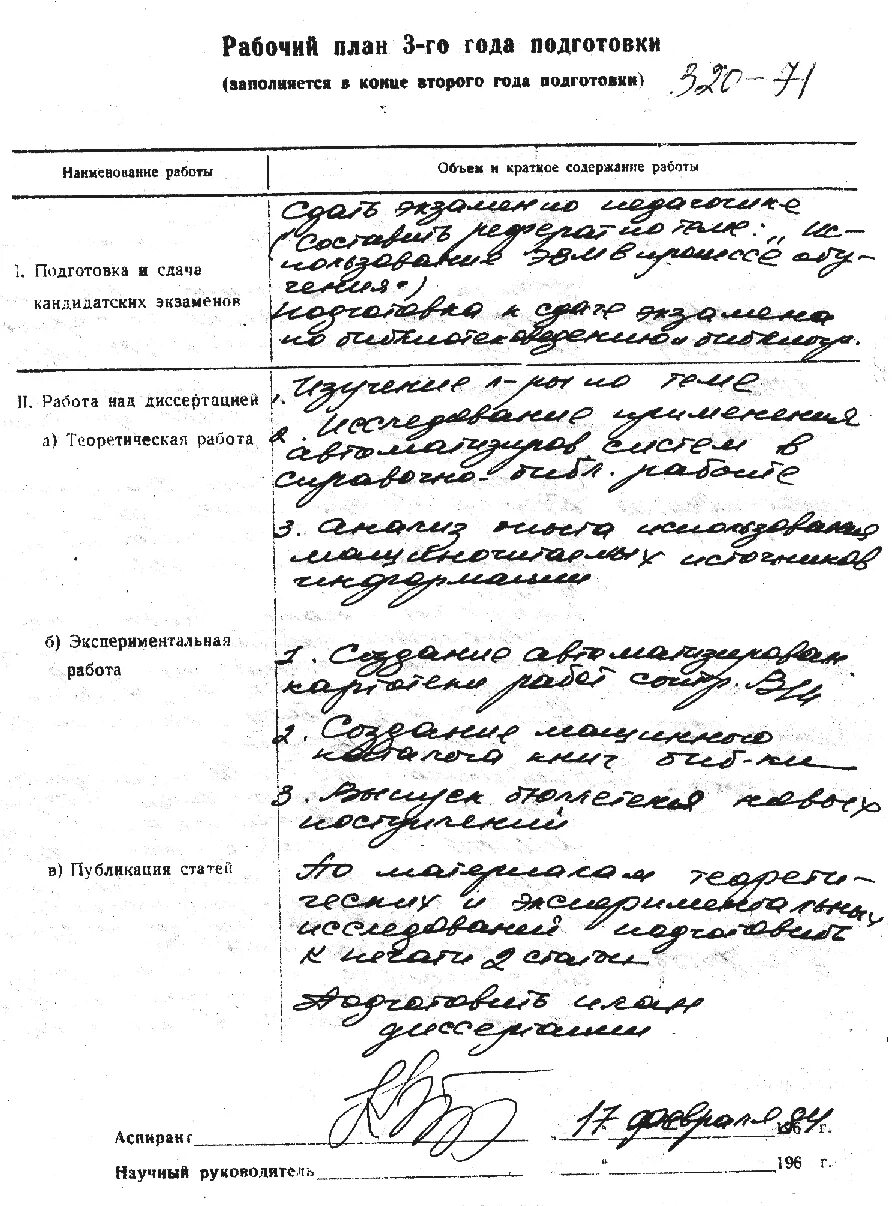 Рабочий план 3-го года подготовки
(заполняется в конце второго года подготовки)
320-71
Наименование работы
Объем и краткое содержание работы
I. Подготовка и сдача
кандидатских экзаменов
Сдать экзамен по педагогике
(Составить реферат по теме: „Ис-
пользование ЭВМ в процессе обу-
чения")
Подготовка к сдаче экзамена
по библиотековедению и библиогр.
II. Работа над диссертацией
а) Теоретическая работа
1. Изучение л-ры по теме
2. Исследование применения
автоматизиров. систем в
справочно-библ. работе
3. Анализ опыта использования
машиночитаемых источников
информации
б) Экспериментальная
работа
1. Создание автоматизирован
картотеки работ сотр.
2. Создание машинного
каталога книг биб-ки
3. Выпуск бюллетеня новых
поступлений
в) Публикация статей
По материалам теорети-
ческих и экспериментальных
исследований подготовить
к печати 2 статьи
Подготовить план
диссертации
Аспирант
17 февраля 84 г.
Научный руководитель
" 196 г.